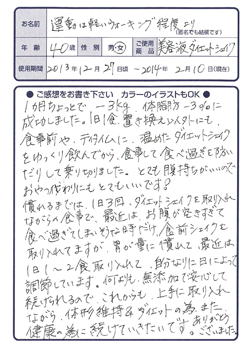 お名前 運動は軽いウォーキング程度 より
(匿名でも結構です)
年齢 40歳 性別 男・女 ご使用商品 美容液ダイエットシェイク
使用期間 2013年12月27日頃 〜2014年2月10日(現在)
●ご感想をお書き下さい カラーのイラストもOK●
1か月ちょっとで −3kg、体脂肪 −3%に
成功しました。1日1食置き換え以外にも、
食事前や、ティタイムに、温めたダイエットシェイク
をゆっくり飲んでから、食事して食べ過ぎを防い
だりして乗りきりました。とても腹持ちがいいので
おやつ代わりにもとてもいいです?
慣れるまでは、1日3回、ダイエットシェイクを取り入れ
ながらの食事で、最近は、お腹が空きすぎて
食べ過ぎてしまいそうな時だけ、食前シェイクを
取り入れてますが、胃が量に慣れて、最近は
1日1〜2食取り入れて、的な日によって
調節しています。何よりも、無添加で安心して
続けられるので、これからも、上手に取り入れ
ながら、体形維持&ダイエットの為、また、
健康の為に続けていきたいです。ありがとう
ございました。